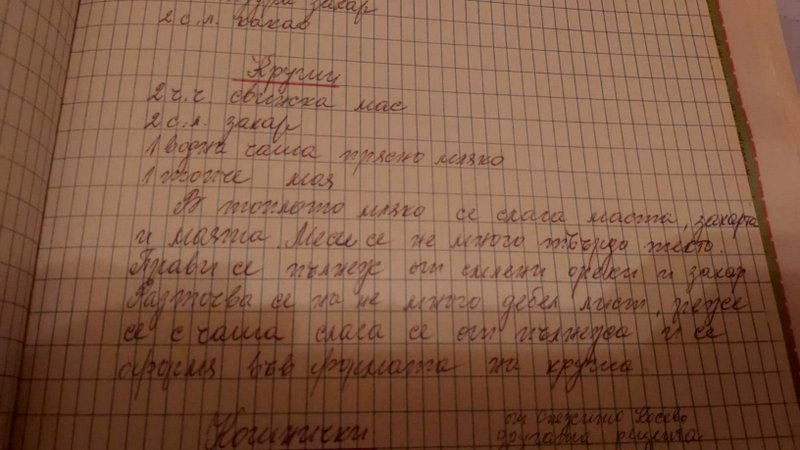 пудра захар
2 с.л. какао
Круши
2 ч.ч. свинска мас
2 с.л. захар
1 водна чаша прясно мляко
1 топче мая
В топлото мляко се слага маста, захарта
и маята. Меси се не много твърдо тесто.
Прави се пълнеж от смлени орехи и захар
Разточва се на не много дебел лист, реже
се с чаша слага се от пълнежа и се
оформя във формата на круша
Кошнички
от
другата рецепта